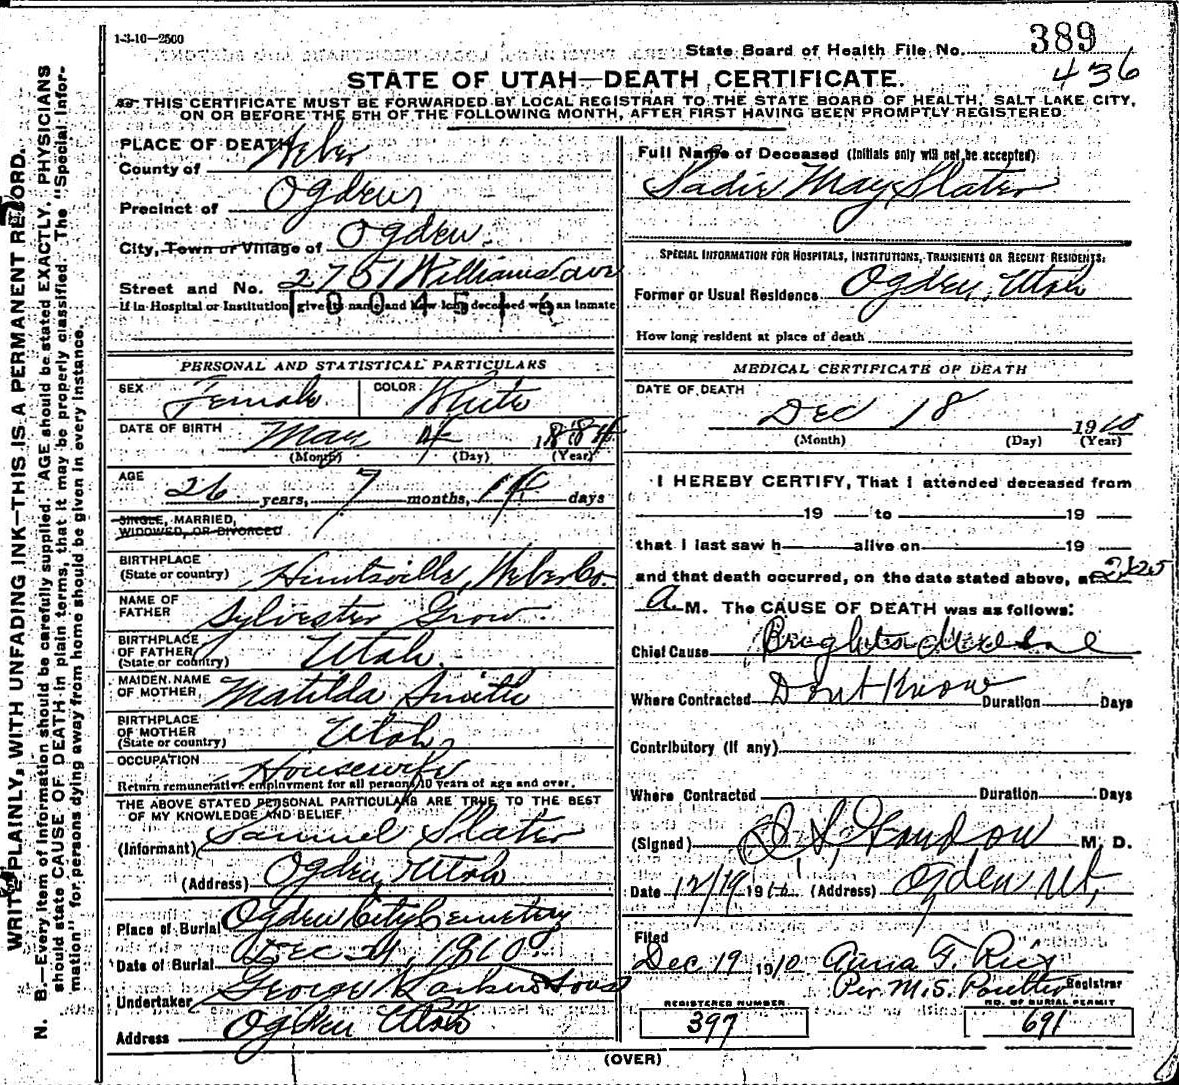 1-3-10—2500
State Board of Health File No. 389
436
STATE OF UTAH—DEATH CERTIFICATE.
THIS CERTIFICATE MUST BE FORWARDED BY LOCAL REGISTRAR TO THE STATE BOARD OF HEALTH, SALT LAKE CITY,
ON OR BEFORE THE 5TH OF THE FOLLOWING MONTH, AFTER FIRST HAVING BEEN PROMPTLY REGISTERED.
WRITE PLAINLY, WITH UNFADING INK—THIS IS A PERMANENT RECORD.
N. B.—Every item of information should be carefully supplied. AGE should be stated EXACTLY. PHYSICIANS
should state CAUSE OF DEATH in plain terms, that it may be properly classified. The "Special Infor-
mation" for persons dying away from home should be given in every instance.
PLACE OF DEATH
County of Weber
Precinct of Ogden
City, Town or Village of Ogden.
Street and No. 2751 Williams ave
If in Hospital or Institution give its name and how long deceased was an inmate
1004516
PERSONAL AND STATISTICAL PARTICULARS
SEX Female COLOR White
DATE OF BIRTH May 4 1884
(Month) (Day) (Year)
AGE 26 years, 7 months, 14 days
SINGLE, MARRIED,
WIDOWED, OR DIVORCED
BIRTHPLACE
(State or country) Huntsville, Weber Co
NAME OF
FATHER Sylvester Grow
BIRTHPLACE
OF FATHER
(State or country) Utah.
MAIDEN NAME
OF MOTHER Matilda Smith
BIRTHPLACE
OF MOTHER
(State or country) Utah
OCCUPATION Housewife
Return remunerative employment for all persons 10 years of age and over.
THE ABOVE STATED PERSONAL PARTICULARS ARE TRUE TO THE BEST
OF MY KNOWLEDGE AND BELIEF
(Informant) Samuel Slater
(Address) Ogden, Utah
Place of Burial Ogden City Cemetery
Date of Burial Dec 21, 1910
Undertaker George Larkin & Sons
Address Ogden Utah
Full Name of Deceased (Initials only will not be accepted)
Sadie May Slater
SPECIAL INFORMATION FOR HOSPITALS, INSTITUTIONS, TRANSIENTS OR RECENT RESIDENTS:
Former or Usual Residence Ogden, Utah
How long resident at place of death
MEDICAL CERTIFICATE OF DEATH
DATE OF DEATH
Dec 18 1910
(Month) (Day) (Year)
I HEREBY CERTIFY, That I attended deceased from
19 to 19
that I last saw h alive on 19
and that death occurred, on the date stated above, at
A M. The CAUSE OF DEATH was as follows:
Chief Cause Brights Disease
Where Contracted Dont Know Duration Days
Contributory (if any)
Where Contracted Duration Days
(Signed) M. D.
Date 12/19 1910 (Address) Ogden Ut,
Filed
Dec 19 1910 Anna G. Rich
Per M.S. Poulter Registrar
REGISTERED NUMBER
397
NO. OF BURIAL PERMIT
691
(OVER)